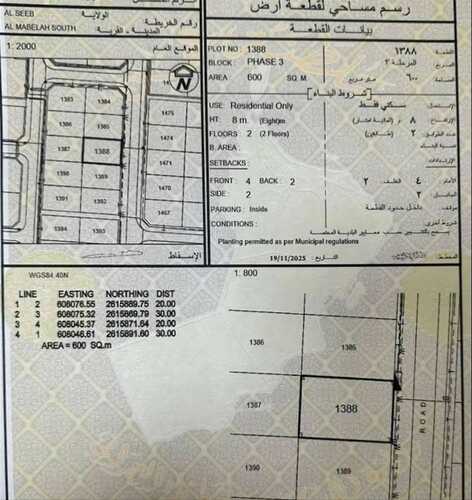 رسم مساحي لقطعة أرض
AL SEEB
الولاية
AL MABELAH SOUTH
رقم الخريطة
المدينة - القرية
1: 2000
الموقع العام
N
1383 1384
1385 1386 1475
1387 1388 1474
1390 1389 1471
1391 1392 1470
1467
الإسقاط
بيانات القطعة
PLOT NO : 1388 ١٣٨٨ القطعة
BLOCK : PHASE 3 المرحلة ٣
AREA 600 SQ. M ٦٠٠ المساحة
شروط البناء
USE: Residential Only سكني فقط
HT: 8 m. (Eight)m ٨ م
FLOORS 2 (2 Floors) ٢
B. AREA :
SETBACKS:
FRONT: 4 BACK : 2 ٢ الخلف ٤ الأمام
SIDE : 2 ٢
PARKING : Inside داخل حدود القطعة
CONDITIONS :
Planting permitted as per Municipal regulations
19/11/2025 التاريخ :
1: 800
WGS84.40N
LINE EASTING NORTHING DIST
1 2 608076.55 2615889.75 20.00
2 3 608075.32 2615869.79 30.00
3 4 608045.37 2615871.64 20.00
4 1 608046.61 2615891.60 30.00
AREA = 600 SQ.m
1386 1385
1387 1388
1390 1389
ROAD